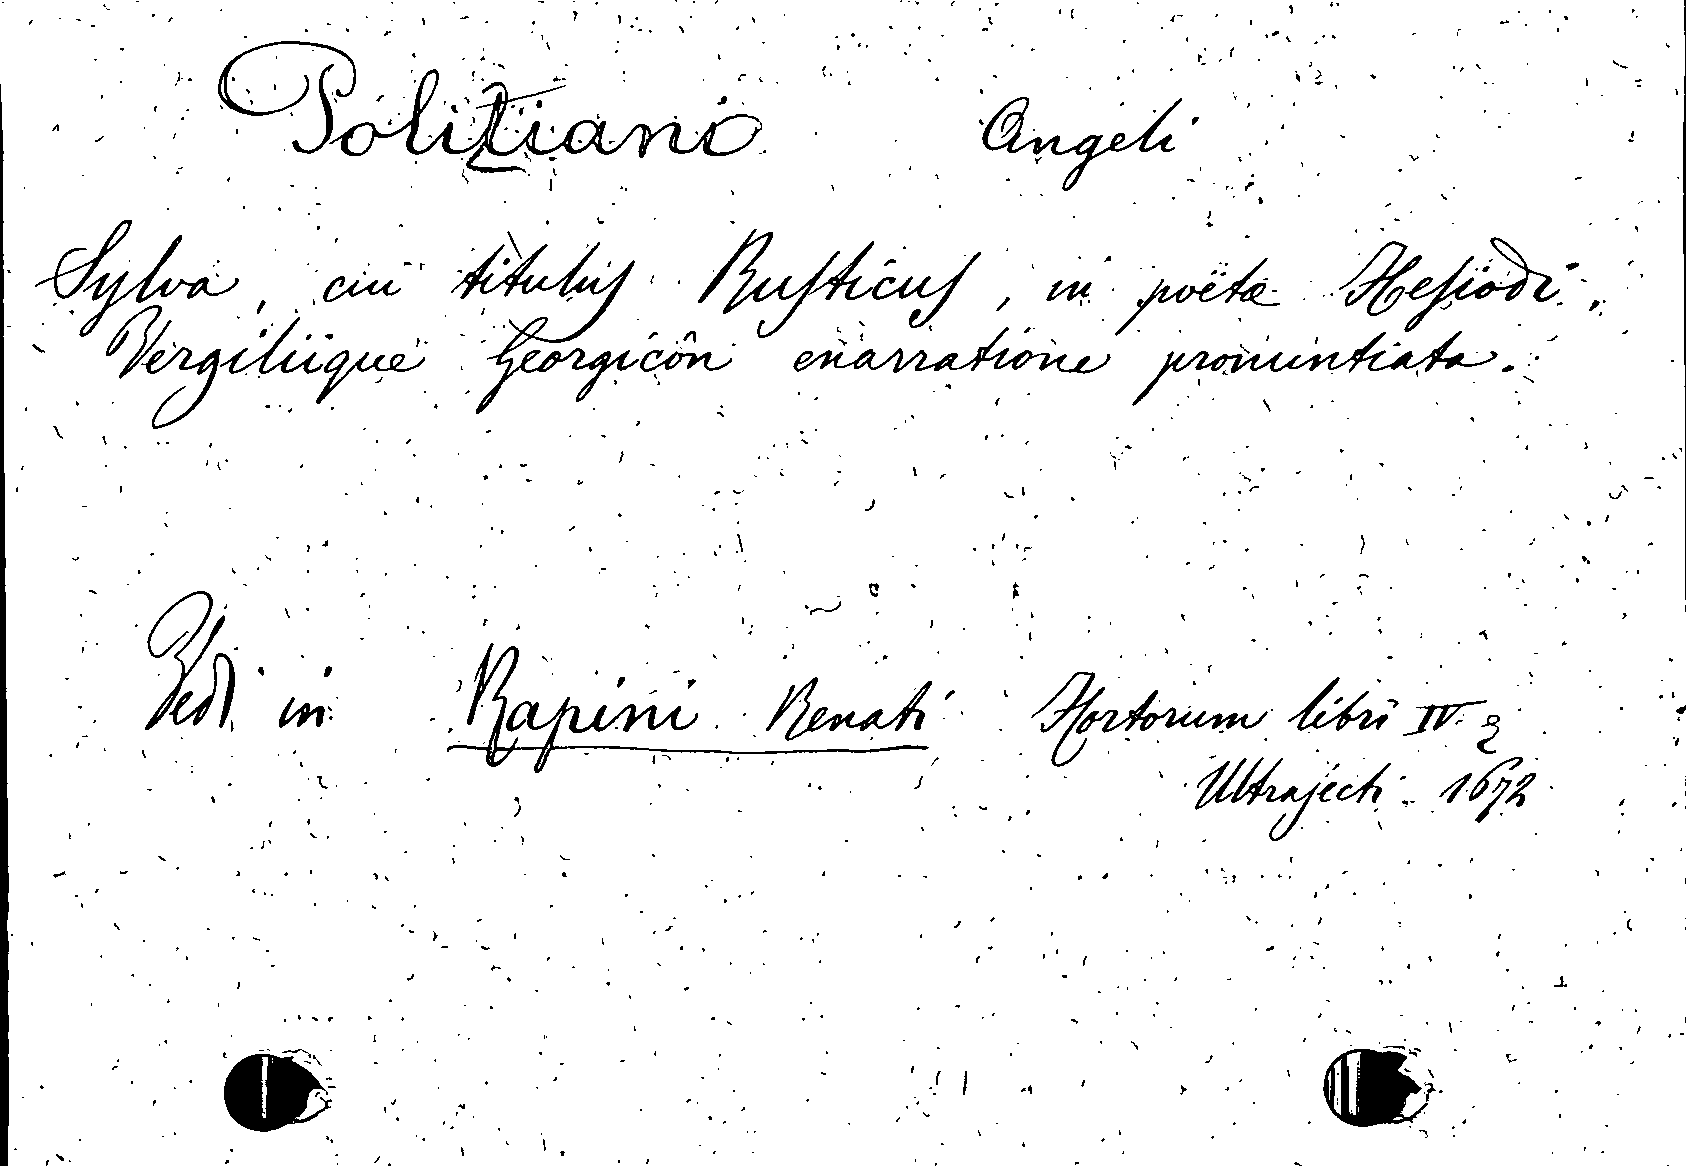 Politiani Angeli
Sylva, cui titulus Rusticus, in poëtæ Hesiodi,
Vergiliique Georgicôn enarratione pronuntiata.
Vedi in Rapini Renati Hortorum libri IV. &
Ultrajecti 1672